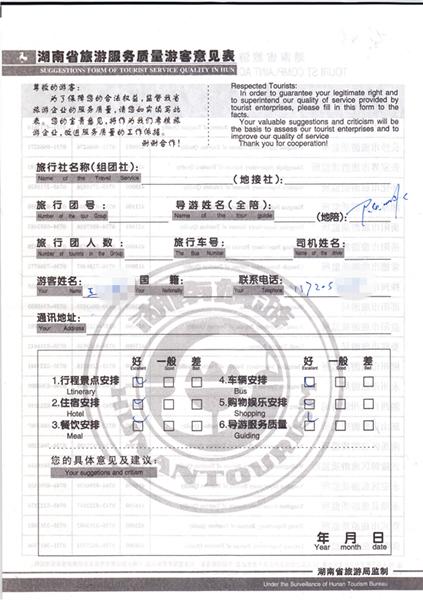 湖南省旅游服务质量游客意见表
SUGGESTIONS FORM OF TOURIST SERVICE QUALITY IN HUN
尊敬的游客:
为了保障您的合法权益,监督我省
旅游企业的服务质量,请您如实填写此
表。您的宝贵意见,将作为我们考核旅
游企业,改进服务质量的工作依据。
谢谢合作!
Respected Tourists:
In order to guarantee your legitimate right and
to superintend our quality of service provided by
tourist enterprises, please fill in this form to the
facts.
Your valuable suggestions and criticism will
be the basis to assess our tourist enterprises and to
improve our quality of service
Thank you for cooperation!
旅行社名称(组团社): (地接社):
Name of the Travel Service
旅行团号: 导游姓名(全陪): (地陪):
Number of the tour Group Name of the tour guide
旅行团人数: 旅行车号: 司机姓名:
Number of tourists in the Group The Bus Number Name of the drive
游客姓名: 王 国籍: 联系电话: 137205
Your Name Your Nationality Your Telephone
通讯地址:
Your Address
好 一般 差 好 一般 差
Excellent Good Bad Excellent Good Bad
1.行程景点安排 4.车辆安排
Ltinerary Bus
2.住宿安排 5.购物娱乐安排
Hotel Shopping
3.餐饮安排 6.导游服务质量
Meal Guiding
您的具体意见及建议:
Your suggetions and critism
HUNAN TOURISM
年 月 日
Year month date
湖南省旅游局监制
Under the Surveillance of Hunan Tourism Bureau